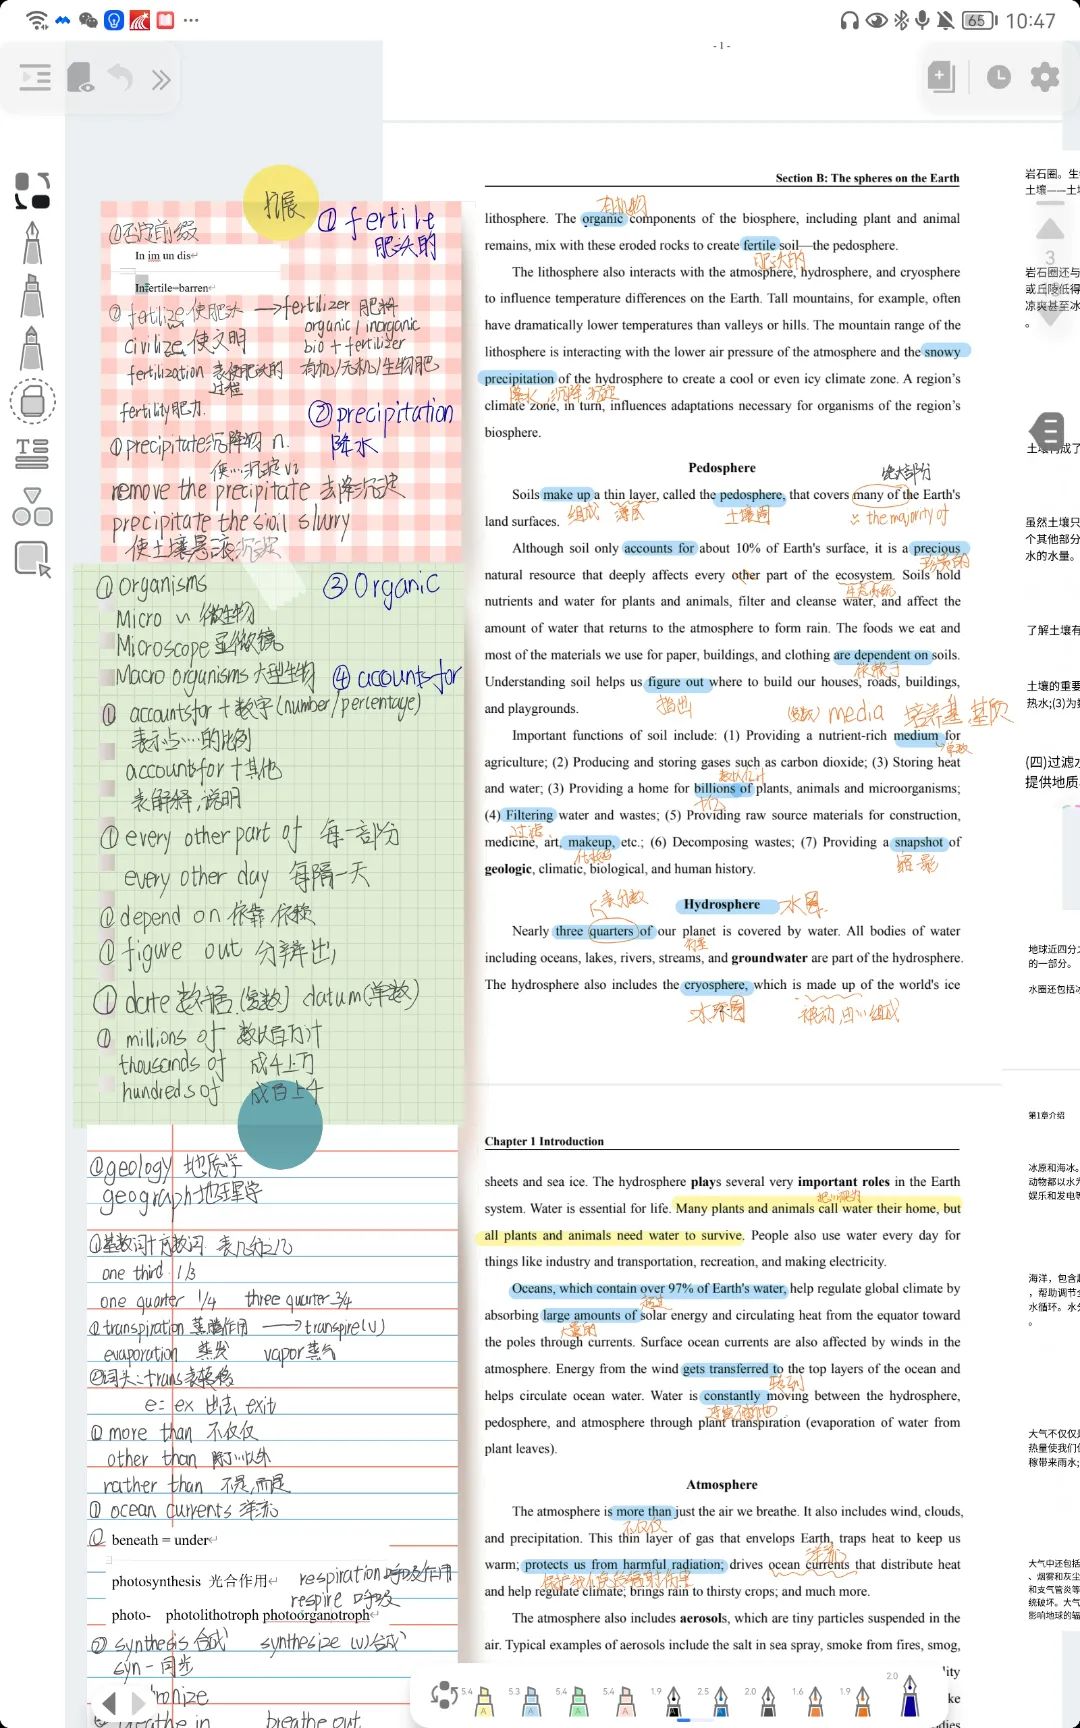 65 10:47
- 1 -
Section B: The spheres on the Earth
有机物
lithosphere. The organic components of the biosphere, including plant and animal
remains, mix with these eroded rocks to create fertile soil—the pedosphere.
肥沃的
The lithosphere also interacts with the atmosphere, hydrosphere, and cryosphere
to influence temperature differences on the Earth. Tall mountains, for example, often
have dramatically lower temperatures than valleys or hills. The mountain range of the
lithosphere is interacting with the lower air pressure of the atmosphere and the snowy
precipitation of the hydrosphere to create a cool or even icy climate zone. A region's
降水 沉降 沉淀
climate zone, in turn, influences adaptations necessary for organisms of the region's
biosphere.
Pedosphere
绝大部分
Soils make up a thin layer, called the pedosphere, that covers many of the Earth's
land surfaces. 组成 薄层 土壤圈 the majority of
Although soil only accounts for about 10% of Earth's surface, it is a precious
珍贵的
natural resource that deeply affects every other part of the ecosystem. Soils hold
生态系统
nutrients and water for plants and animals, filter and cleanse water, and affect the
amount of water that returns to the atmosphere to form rain. The foods we eat and
most of the materials we use for paper, buildings, and clothing are dependent on soils.
依赖于
Understanding soil helps us figure out where to build our houses, roads, buildings,
and playgrounds. 指出 (复数) media 培养基 基质
Important functions of soil include: (1) Providing a nutrient-rich medium for
单数
agriculture; (2) Producing and storing gases such as carbon dioxide; (3) Storing heat
数以亿计
and water; (3) Providing a home for billions of plants, animals and microorganisms;
十亿
(4) Filtering water and wastes; (5) Providing raw source materials for construction,
过滤
medicine, art, makeup, etc.; (6) Decomposing wastes; (7) Providing a snapshot of
化妆品 缩影
geologic, climatic, biological, and human history.
表分数
Hydrosphere 水圈
Nearly three quarters of our planet is covered by water. All bodies of water
including oceans, lakes, rivers, streams, and groundwater are part of the hydrosphere.
The hydrosphere also includes the cryosphere, which is made up of the world's ice
冰冻圈 被动,由…组成
Chapter 1 Introduction
sheets and sea ice. The hydrosphere plays several very important roles in the Earth
system. Water is essential for life. Many plants and animals call water their home, but
all plants and animals need water to survive. People also use water every day for
things like industry and transportation, recreation, and making electricity.
Oceans, which contain over 97% of Earth's water, help regulate global climate by
超过
absorbing large amounts of solar energy and circulating heat from the equator toward
大量的
the poles through currents. Surface ocean currents are also affected by winds in the
atmosphere. Energy from the wind gets transferred to the top layers of the ocean and
转移到
helps circulate ocean water. Water is constantly moving between the hydrosphere,
pedosphere, and atmosphere through plant transpiration (evaporation of water from
plant leaves).
Atmosphere
The atmosphere is more than just the air we breathe. It also includes wind, clouds,
不仅仅
and precipitation. This thin layer of gas that envelops Earth, traps heat to keep us
洋流
warm; protects us from harmful radiation; drives ocean currents that distribute heat
and help regulate climate; brings rain to thirsty crops; and much more.
The atmosphere also includes aerosols, which are tiny particles suspended in the
air. Typical examples of aerosols include the salt in sea spray, smoke from fires, smog,
扩展
①否定前缀
In im un dis
Infertile=barren
① fertile
肥沃的
② fertilize 使肥沃 → fertilizer 肥料
organic / inorganic
civilize 使文明 bio + fertilizer
fertilization 表使肥沃的过程 有机/无机/生物肥
fertility 肥力
② precipitation
降水
① precipitate 沉降物 n.
使…沉淀 vt
remove the precipitate 去除沉淀
precipitate the soil slurry
使土壤悬液沉淀
① organisms
③ Organic
Micro ~ 微生物
Microscope 显微镜
Macro organisms 大型生物
④ accounts for
① accounts for + 数字 (number/percentage)
表示占…的比例
accounts for + 其他
表解释,说明
① every other part of 每一部分
every other day 每隔一天
① depend on 依靠 依赖
① figure out 分辨出,
① date 数据 (复数) datum (单数)
① millions of 数以百万计
thousands of 成千上万
hundreds of 成百上千
① geology 地质学
geograph 地理学
① 基数词+序数词 表几分之几
one third 1/3
one quarter 1/4 three quarter 3/4
① transpiration 蒸腾作用 → transpire (v)
evaporation 蒸发 vapor 蒸气
② 词头: trans 表转移
e = ex 出去 exit
① more than 不仅仅
other than 除了…以外
rather than 不是,而是
① ocean currents 洋流
① beneath = under
photosynthesis 光合作用 respiration 呼吸作用
respire 呼吸
photo- photolithotroph photoorganotroph
② synthesis 合成 synthesize (v) 合成
syn - 同步
breathe out
岩石圈。生
3
岩石圈还与
或丘陵低得
凉爽甚至冰
。
虽然土壤只
个其他部分
水的水量。
了解土壤有
土壤的重要
热水;(3)为
(四)过滤水
提供地质、
地球近四分之
的一部分。
水圈还包括冰
第1章介绍
冰原和海冰。
动物都以水为
娱乐和发电等
海洋，包含超
，帮助调节全
水循环。水分
。
大气不仅仅是
热量使我们保
稼带来雨水;
大气中还包括
、烟雾和灰尘
和支气管炎等
统破坏。大气
影响地球的辐
5.4 5.3 5.4 5.4 1.9 2.5 2.0 1.6 1.9 2.0